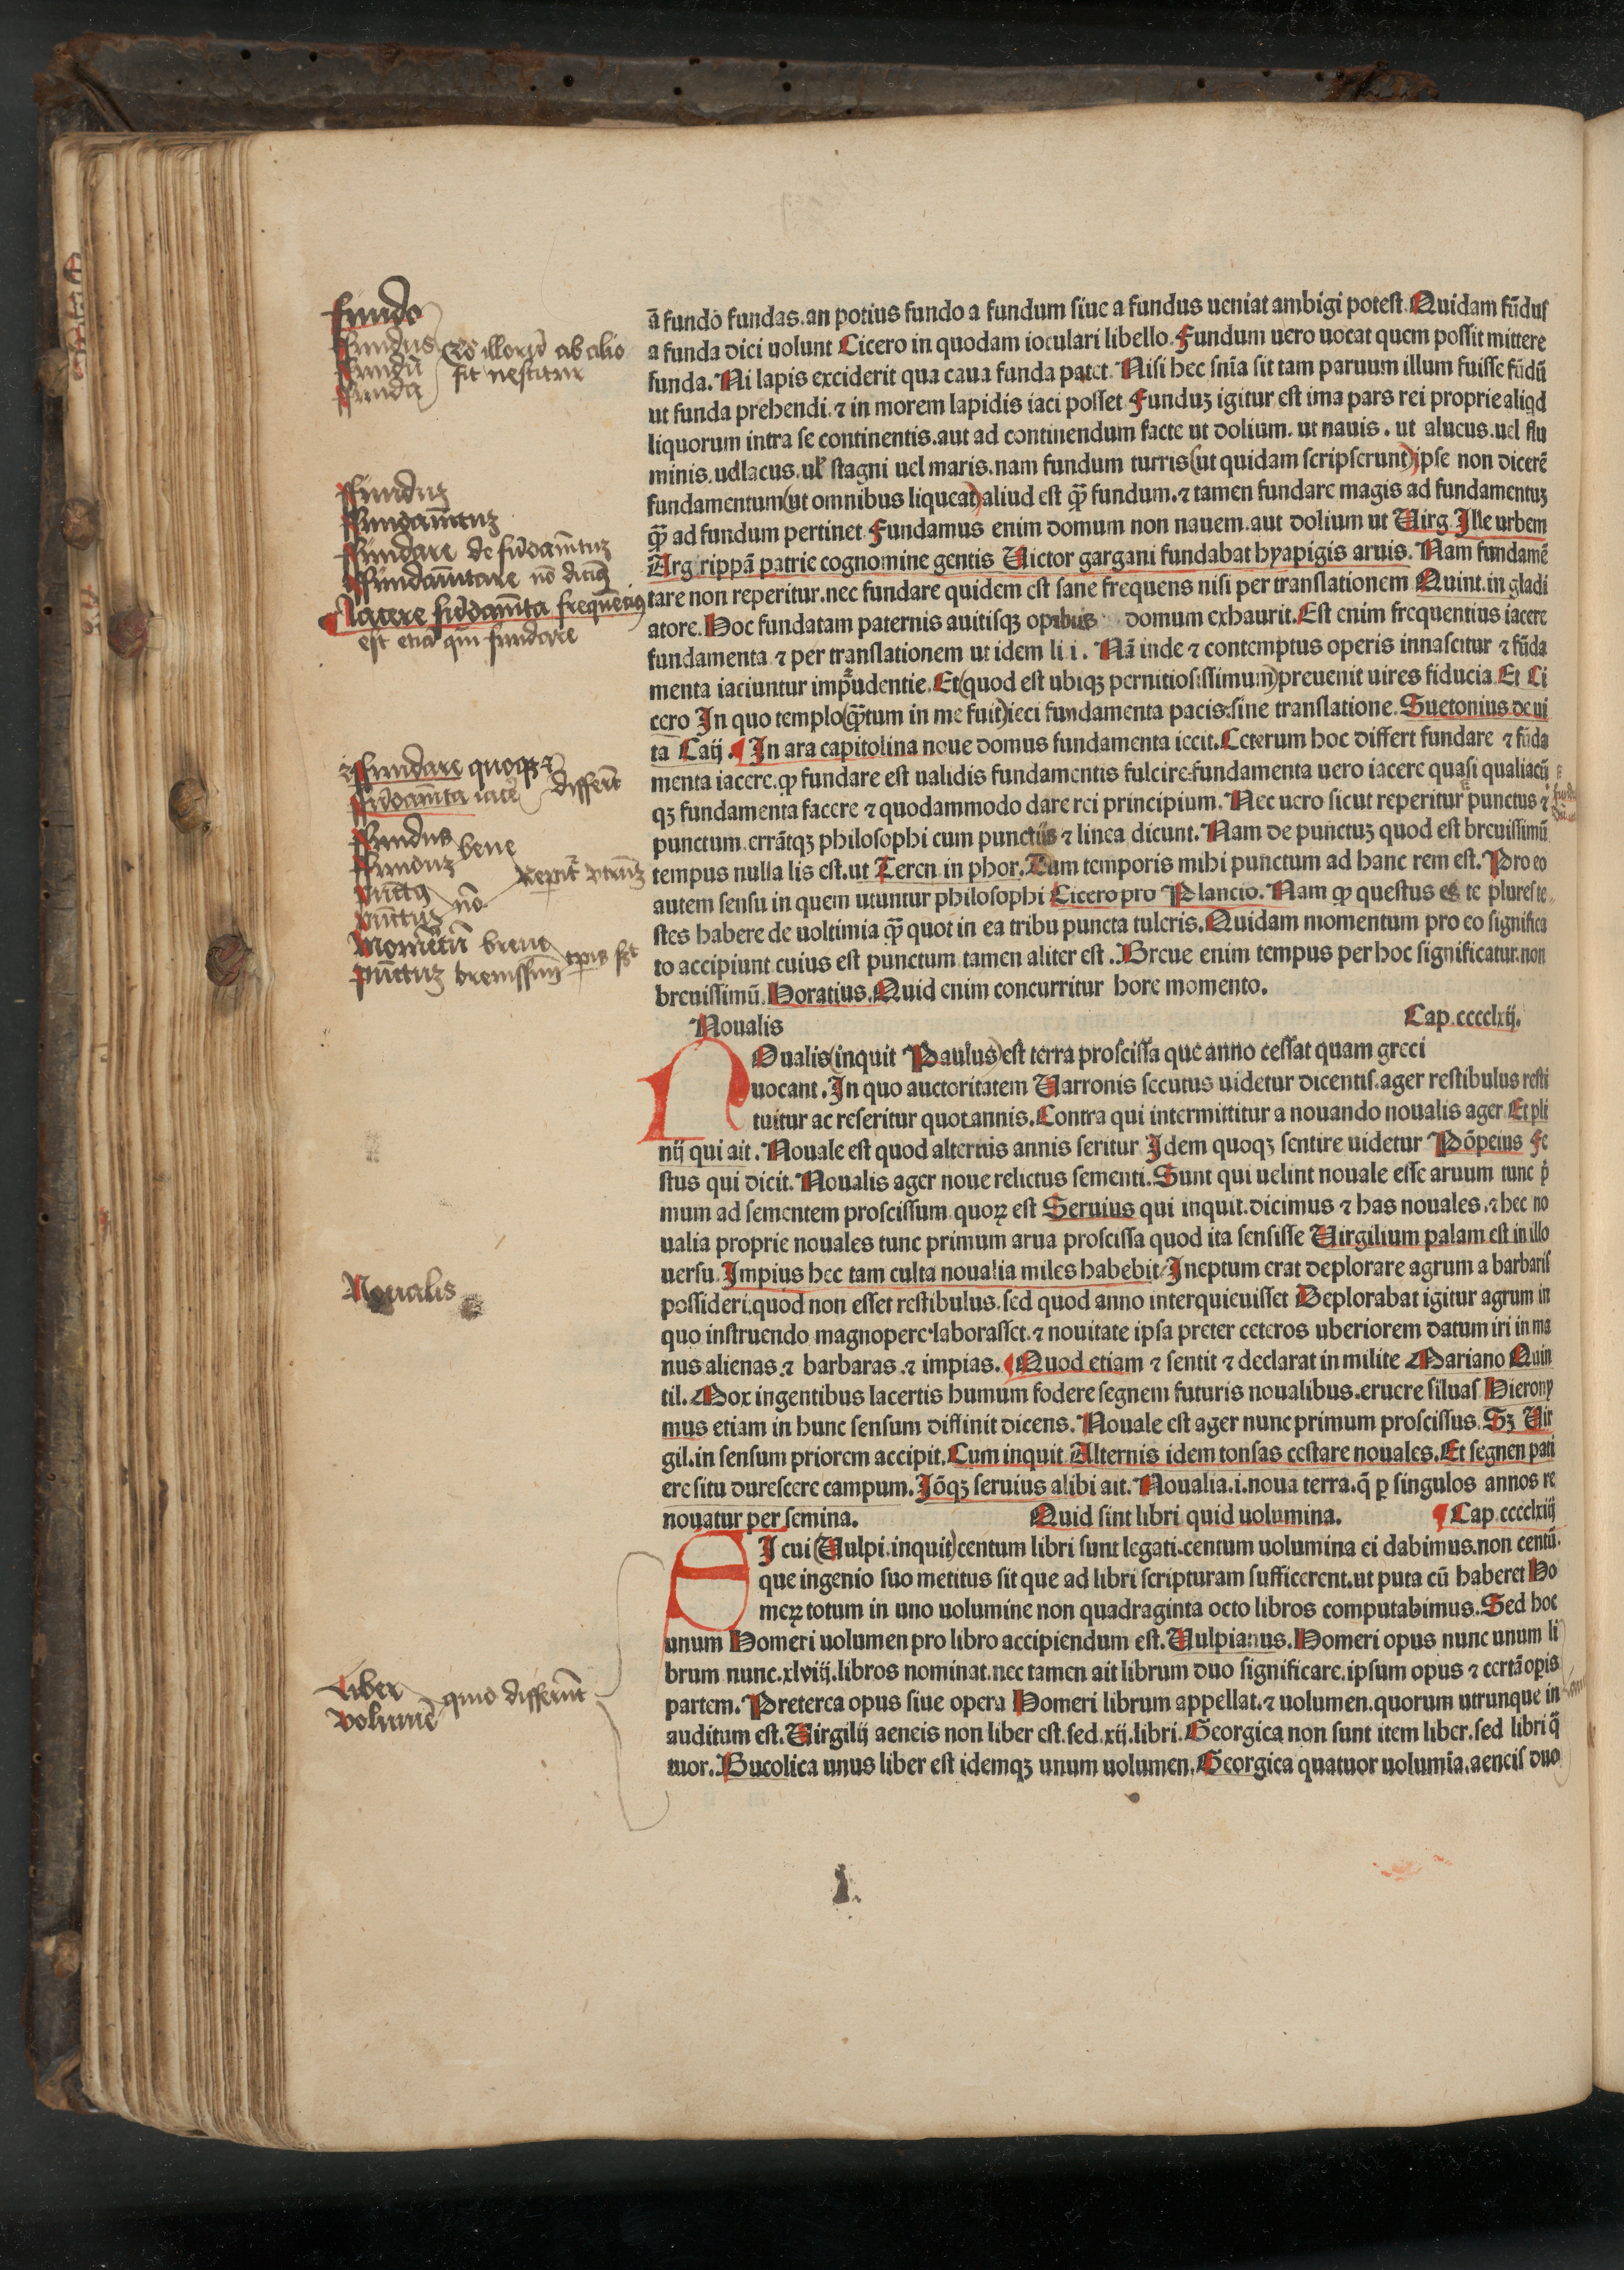 ā fundo fundas. an potius fundo a fundum siue a fundus ueniat ambigi potest. Quidam fūdus
a funda dici uolunt Cicero in quodam ioculari libello. Fundum uero uocat quem possit mittere
funda. Ni lapis exciderit qua caua funda patet. Nisi hec snīa sit tam paruum illum fuisse fūdū
ut funda prehendi. ⁊ in morem lapidis iaci posset Funduꝫ igitur est ima pars rei proprie aliqd
liquorum intra se continentis. aut ad continendum facte ut dolium. ut nauis. ut alueus. uel flu
minis. udlacus. ul̓ stagni uel maris. nam fundum turris (ut quidam scripserunt) ipse non dicerē
fundamentum (ut omnibus liqueat) aliud est qꝫ̄ fundum. ⁊ tamen fundare magis ad fundamentuꝫ
qꝫ̄ ad fundum pertinet Fundamus enim domum non nauem. aut dolium ut Virg Ille urbem
Arg rippā patrie cognomine gentis Victor gargani fundabat hyapigis aruis. Nam fundamē
tare non reperitur. nec fundare quidem est sane frequens nisi per translationem Quint. in gladi
atore. Hoc fundatam paternis auitisqꝫ opibus domum exhaurit. Est enim frequentius iacere
fundamenta ⁊ per translationem ut idem li i. Nā inde ⁊ contemptus operis innascitur ⁊ fūda
menta iaciuntur imprudentie. Et (quod est ubiqꝫ pernitiosissimum) preuenit uires fiducia Et Ci
cero In quo templo (qꝫ̄tum in me fuit) ieci fundamenta pacis: sine translatione. Suetonius de ui
ta Caij. ¶ In ara capitolina noue domus fundamenta iecit. Ceterum hoc differt fundare ⁊ fūda
menta iacere. ꝙ fundare est ualidis fundamentis fulcire: fundamenta uero iacere quasi qualiacū
qꝫ fundamenta facere ⁊ quodammodo dare rei principium. Nec uero sicut reperitur punctus ⁊
punctum. errātqꝫ philosophi cum punctus ⁊ linea dicunt. Nam de punctuꝫ quod est breuissimū
tempus nulla lis est. ut Teren in phor. Tum temporis mihi punctum ad hanc rem est. Pro eo
autem sensu in quem utuntur philosophi Cicero pro Plancio. Nam ꝙ questus es te plures te
stes habere de uoltimia qꝫ̄ quot in ea tribu puncta tuleris. Quidam momentum pro eo significa
to accipiunt cuius est punctum. tamen aliter est. Breue enim tempus per hoc significatur. non
breuissimū. Horatius. Quid enim concurritur hore momento.
Noualis Cap. cccclxij.
NOualis (inquit Paulus) est terra proscissa que anno cessat quam greci
uocant. In quo auctoritatem Varronis secutus uidetur dicentis. ager restibulus resti
tuitur ac reseritur quotannis. Contra qui intermittitur a nouando noualis ager Et pli
nij qui ait. Nouale est quod alternis annis seritur Idem quoqꝫ sentire uidetur Pōpeius Fe
stus qui dicit. Noualis ager noue relictus sementi. Sunt qui uelint nouale esse aruum tunc p̄
mum ad sementem proscissum. quoꝝ est Seruius qui inquit. dicimus ⁊ has nouales. ⁊ hec no
ualia proprie nouales tunc primum arua proscissa quod ita sensisse Virgilium palam est in illo
uersu. Impius hec tam culta noualia miles habebit Ineptum erat deplorare agrum a barbaris
possideri. quod non esset restibulus. sed quod anno interquieuisset Deplorabat igitur agrum in
quo instruendo magnopere laborasset. ⁊ nouitate ipsa preter ceteros uberiorem datum iri in ma
nus alienas. ⁊ barbaras. ⁊ impias. ¶ Quod etiam ⁊ sentit ⁊ declarat in milite Mariano Quin
til. Mox ingentibus lacertis humum fodere segnem futuris noualibus. eruere siluas Hierony
mus etiam in hunc sensum diffinit dicens. Nouale est ager nunc primum proscissus. Sꝫ Vir
gil. in sensum priorem accipit. Cum inquit Alternis idem tonsas cestare nouales. Et segnen pati
ere situ durescere campum. Iōqꝫ seruius alibi ait. Noualia. i. noua terra. q̄ ꝑ singulos annos re
nouatur per semina. Quid sint libri quid uolumina. ¶ Cap. cccclxiij
SI cui (Vulpi. inquit) centum libri sunt legati. centum uolumina ei dabimus. non centū.
que ingenio suo metitus sit que ad libri scripturam sufficerent. ut puta cū haberet Ho
meꝝ totum in uno uolumine non quadraginta octo libros computabimus. Sed hoc
unum Homeri uolumen pro libro accipiendum est. Vulpianus. Homeri opus nunc unum li
brum nunc. xlviij. libros nominat. nec tamen ait librum duo significare. ipsum opus ⁊ certā opis
partem. Preterea opus siue opera Homeri librum appellat. ⁊ uolumen. quorum utrunque in
auditum est. Virgilij aeneis non liber est. sed. xij. libri. Georgica non sunt item liber. sed libri q̄
tuor. Bucolica unus liber est idemqꝫ unum uolumen. Georgica quatuor uolumīa. aeneis duo
fundo
Fundus
Fundū
Funda
ab alio
fit nescitur
Funduꝫ
Fundamētuꝫ
Fundare de fūdamētuꝫ
Fundamētare nō
Iacere fūdamēta frequētius
est etiā qm̄ fundare
Fundare quoqꝫ ⁊
fūdamēta iacē differūt
Fundus
Funduꝫ bene
Pūctus
Pūctuꝫ nō
Momētū breue
Pūctuꝫ breuissimū
Noualis
Liber
Volumē quō differūt